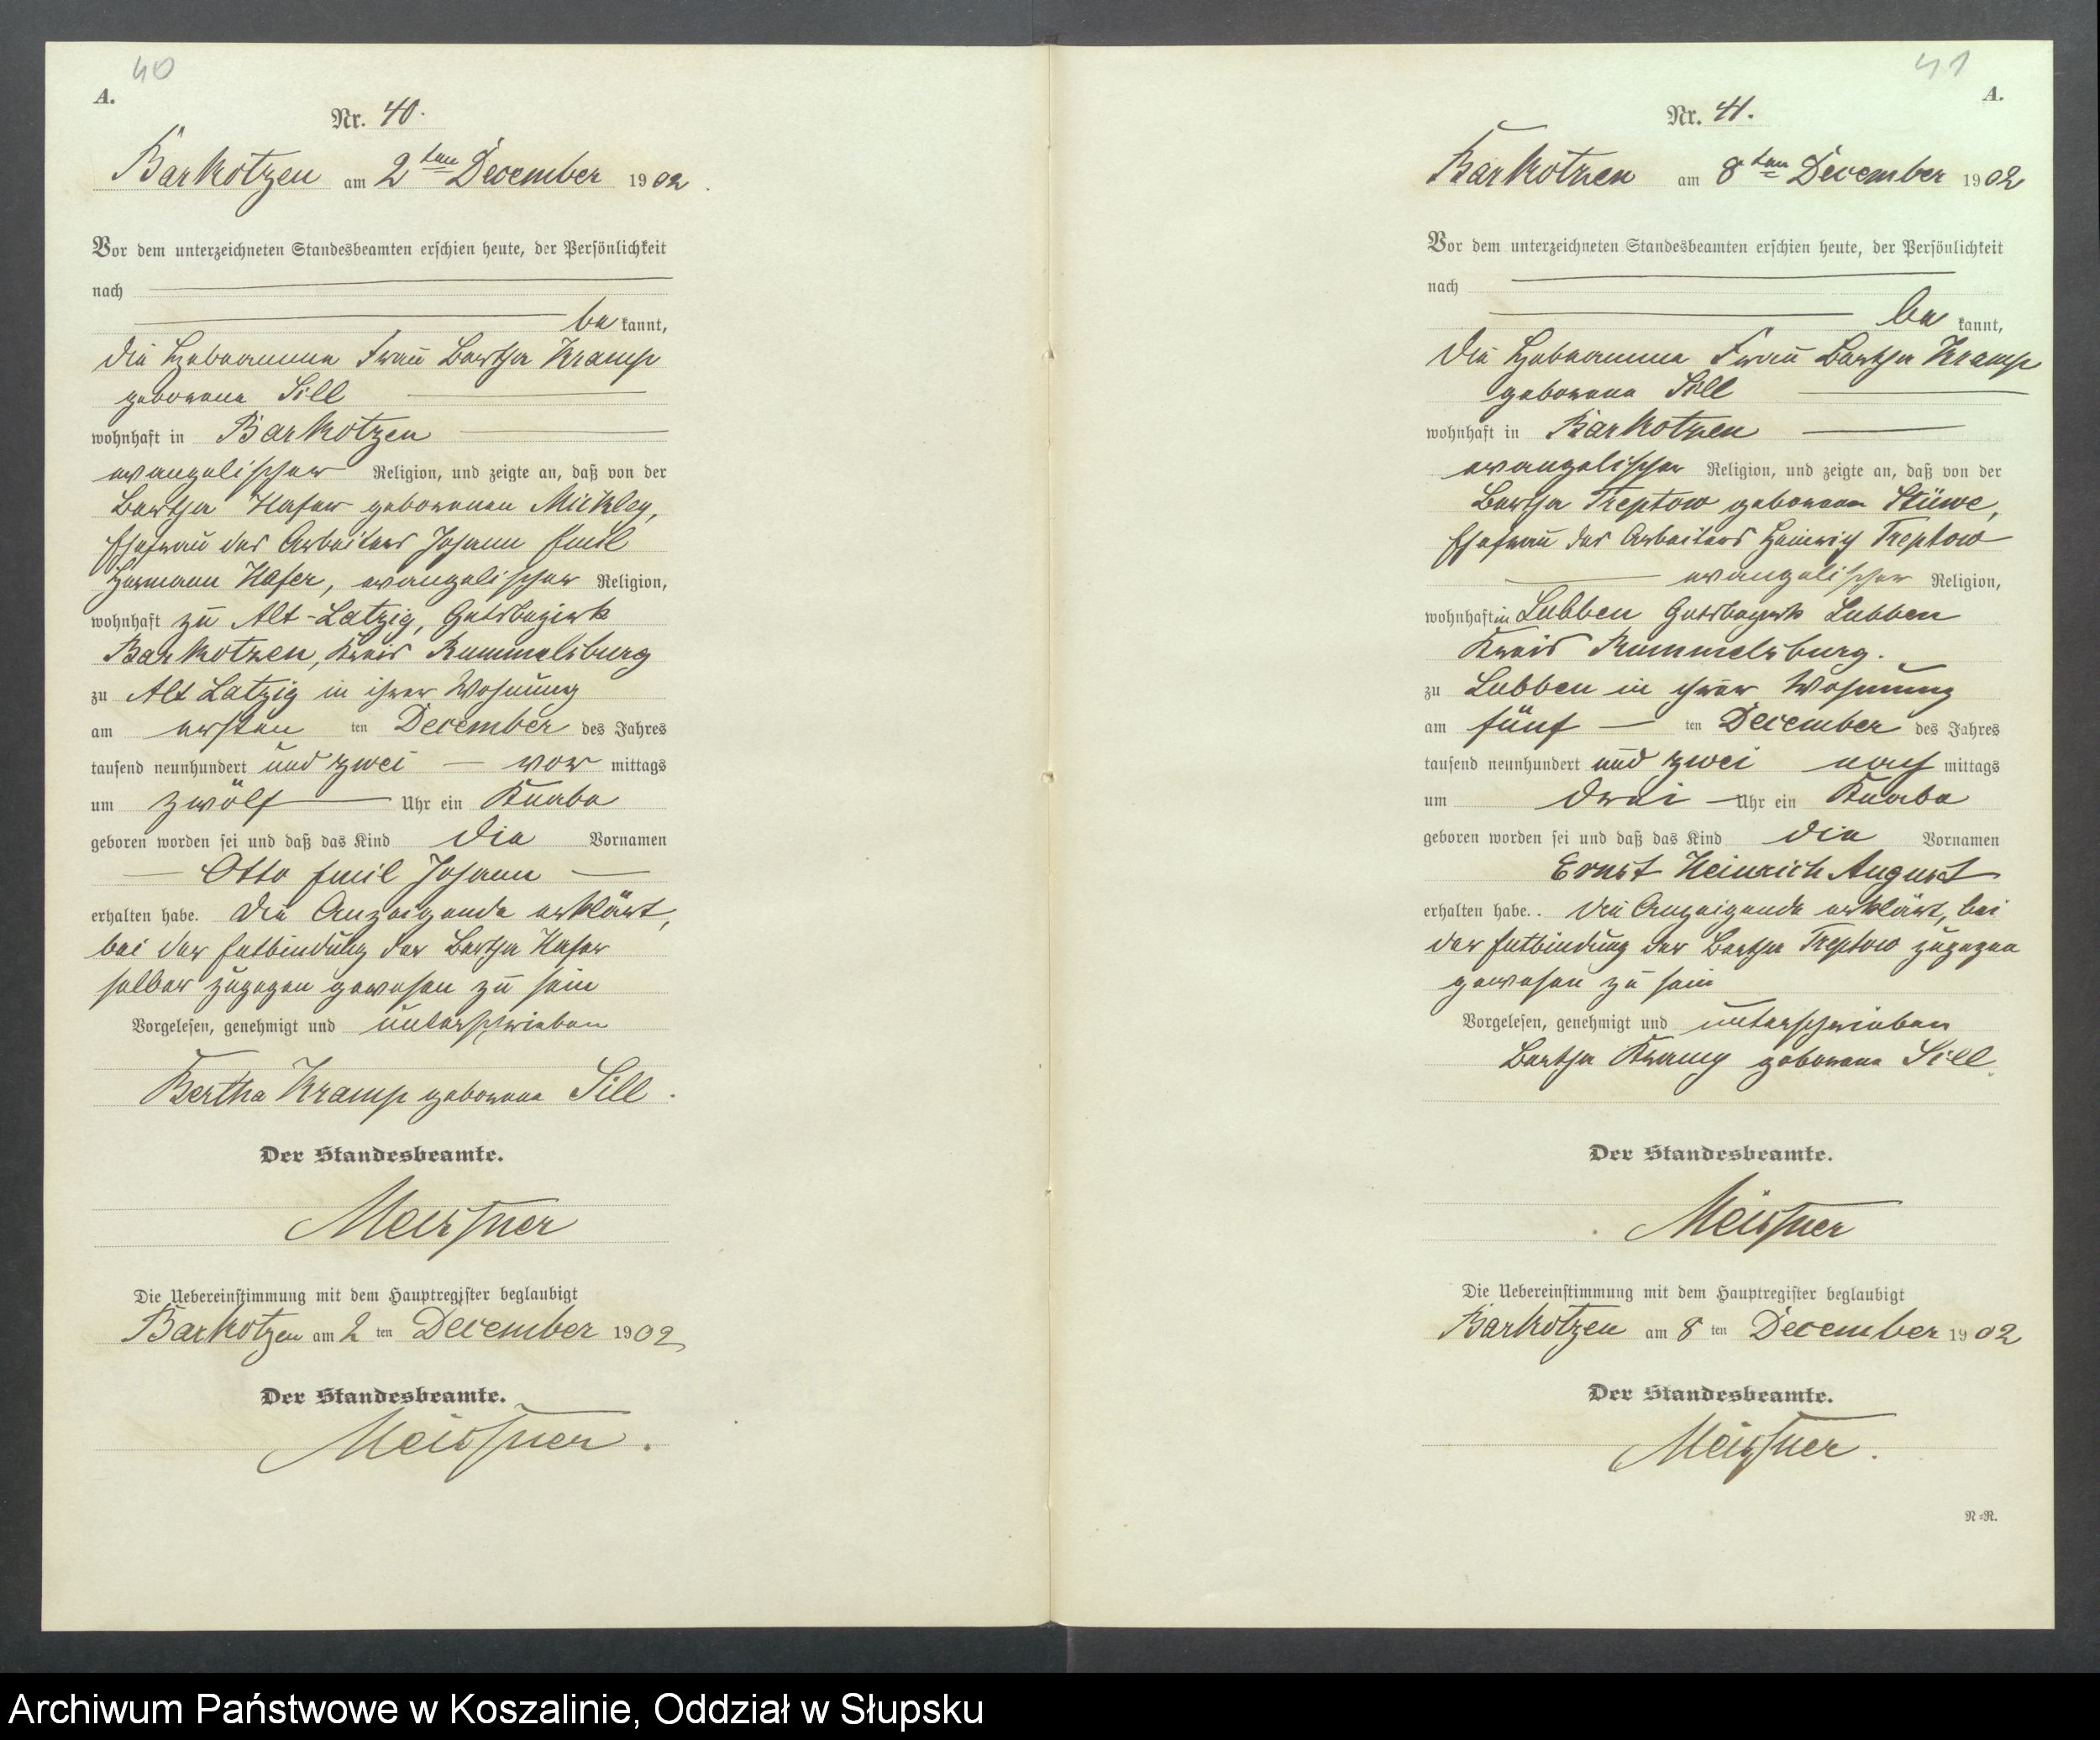 40
A.
Nr. 40.
Barkotzen am 2ten December 1902.
Vor dem unterzeichneten Standesbeamten erschien heute, der Persönlichkeit
nach
be kannt,
die Hebeamme Frau Bertha Kramp
geborene Sill
wohnhaft in Barkotzen
evangelischer Religion, und zeigte an, daß von der
Bertha Hafer geborenen Mickley,
Ehefrau des Arbeiters Johann Emil
Hermann Hafer, evangelischer Religion,
wohnhaft zu Alt-Latzig, Gutsbezirk
Barkotzen, Kreis Rummelsburg
zu Alt Latzig in ihrer Wohnung
am ersten ten December des Jahres
tausend neunhundert und zwei vor mittags
um zwölf Uhr ein Knabe
geboren worden sei und daß das Kind die Vornamen
Otto Emil Johann
erhalten habe. Die Anzeigende erklärt,
bei der Entbindung der Bertha Hafer
selber zugegen gewesen zu sein
Vorgelesen, genehmigt und unterschrieben
Bertha Kramp geborene Sill.
Der Standesbeamte.
Meissner
Die Uebereinstimmung mit dem Hauptregister beglaubigt
Barkotzen am 2 ten December 1902
Der Standesbeamte.
Meissner.
41
A.
Nr. 41.
Barkotzen am 8ten December 1902
Vor dem unterzeichneten Standesbeamten erschien heute, der Persönlichkeit
nach
be kannt,
die Hebeamme Frau Bertha Kramp
geborene Sill
wohnhaft in Barkotzen
evangelischer Religion, und zeigte an, daß von der
Bertha Treptow geborenen Stüwe,
Ehefrau des Arbeiters Heinrich Treptow
evangelischer Religion,
wohnhaft in Lubben Gutsbezirk Lubben
Kreis Rummelsburg.
zu Lubben in ihrer Wohnung
am fünf ten December des Jahres
tausend neunhundert und zwei nach mittags
um drei Uhr ein Knabe
geboren worden sei und daß das Kind die Vornamen
Ernst Heinrich August
erhalten habe. Die Anzeigende erklärt, bei
der Entbindung der Bertha Treptow zugegen
gewesen zu sein
Vorgelesen, genehmigt und unterschrieben
Bertha Kramp geborene Sill
Der Standesbeamte.
Meissner
Die Uebereinstimmung mit dem Hauptregister beglaubigt
Barkotzen am 8 ten December 1902
Der Standesbeamte.
Meissner.
N=R.
Archiwum Państwowe w Koszalinie, Oddział w Słupsku